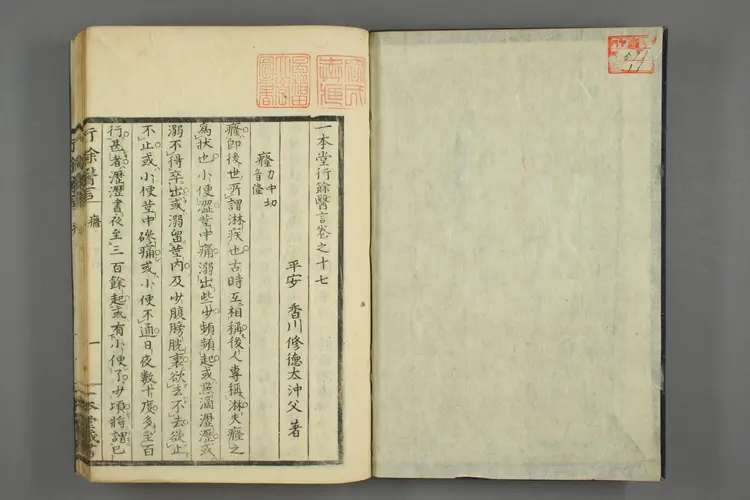 一本堂行餘醫言卷之十七
平安 香川修德太沖父 著
癃 力中切 音隆
癃即後世所謂淋疾也古時互相稱後人專稱淋夫癃之
爲狀也小便澀莖中痛溺出些少頻頻起或點滴瀝瀝或
溺不得卒出或溺留莖内及少腹膀胱裏欲去不去欲止
不止或小便莖中痛或小便不通日夜數十度多至百
行甚者瀝瀝晝夜至三百餘起或有小便了少頃將謂已
行餘醫言
癃
一
一本堂藏